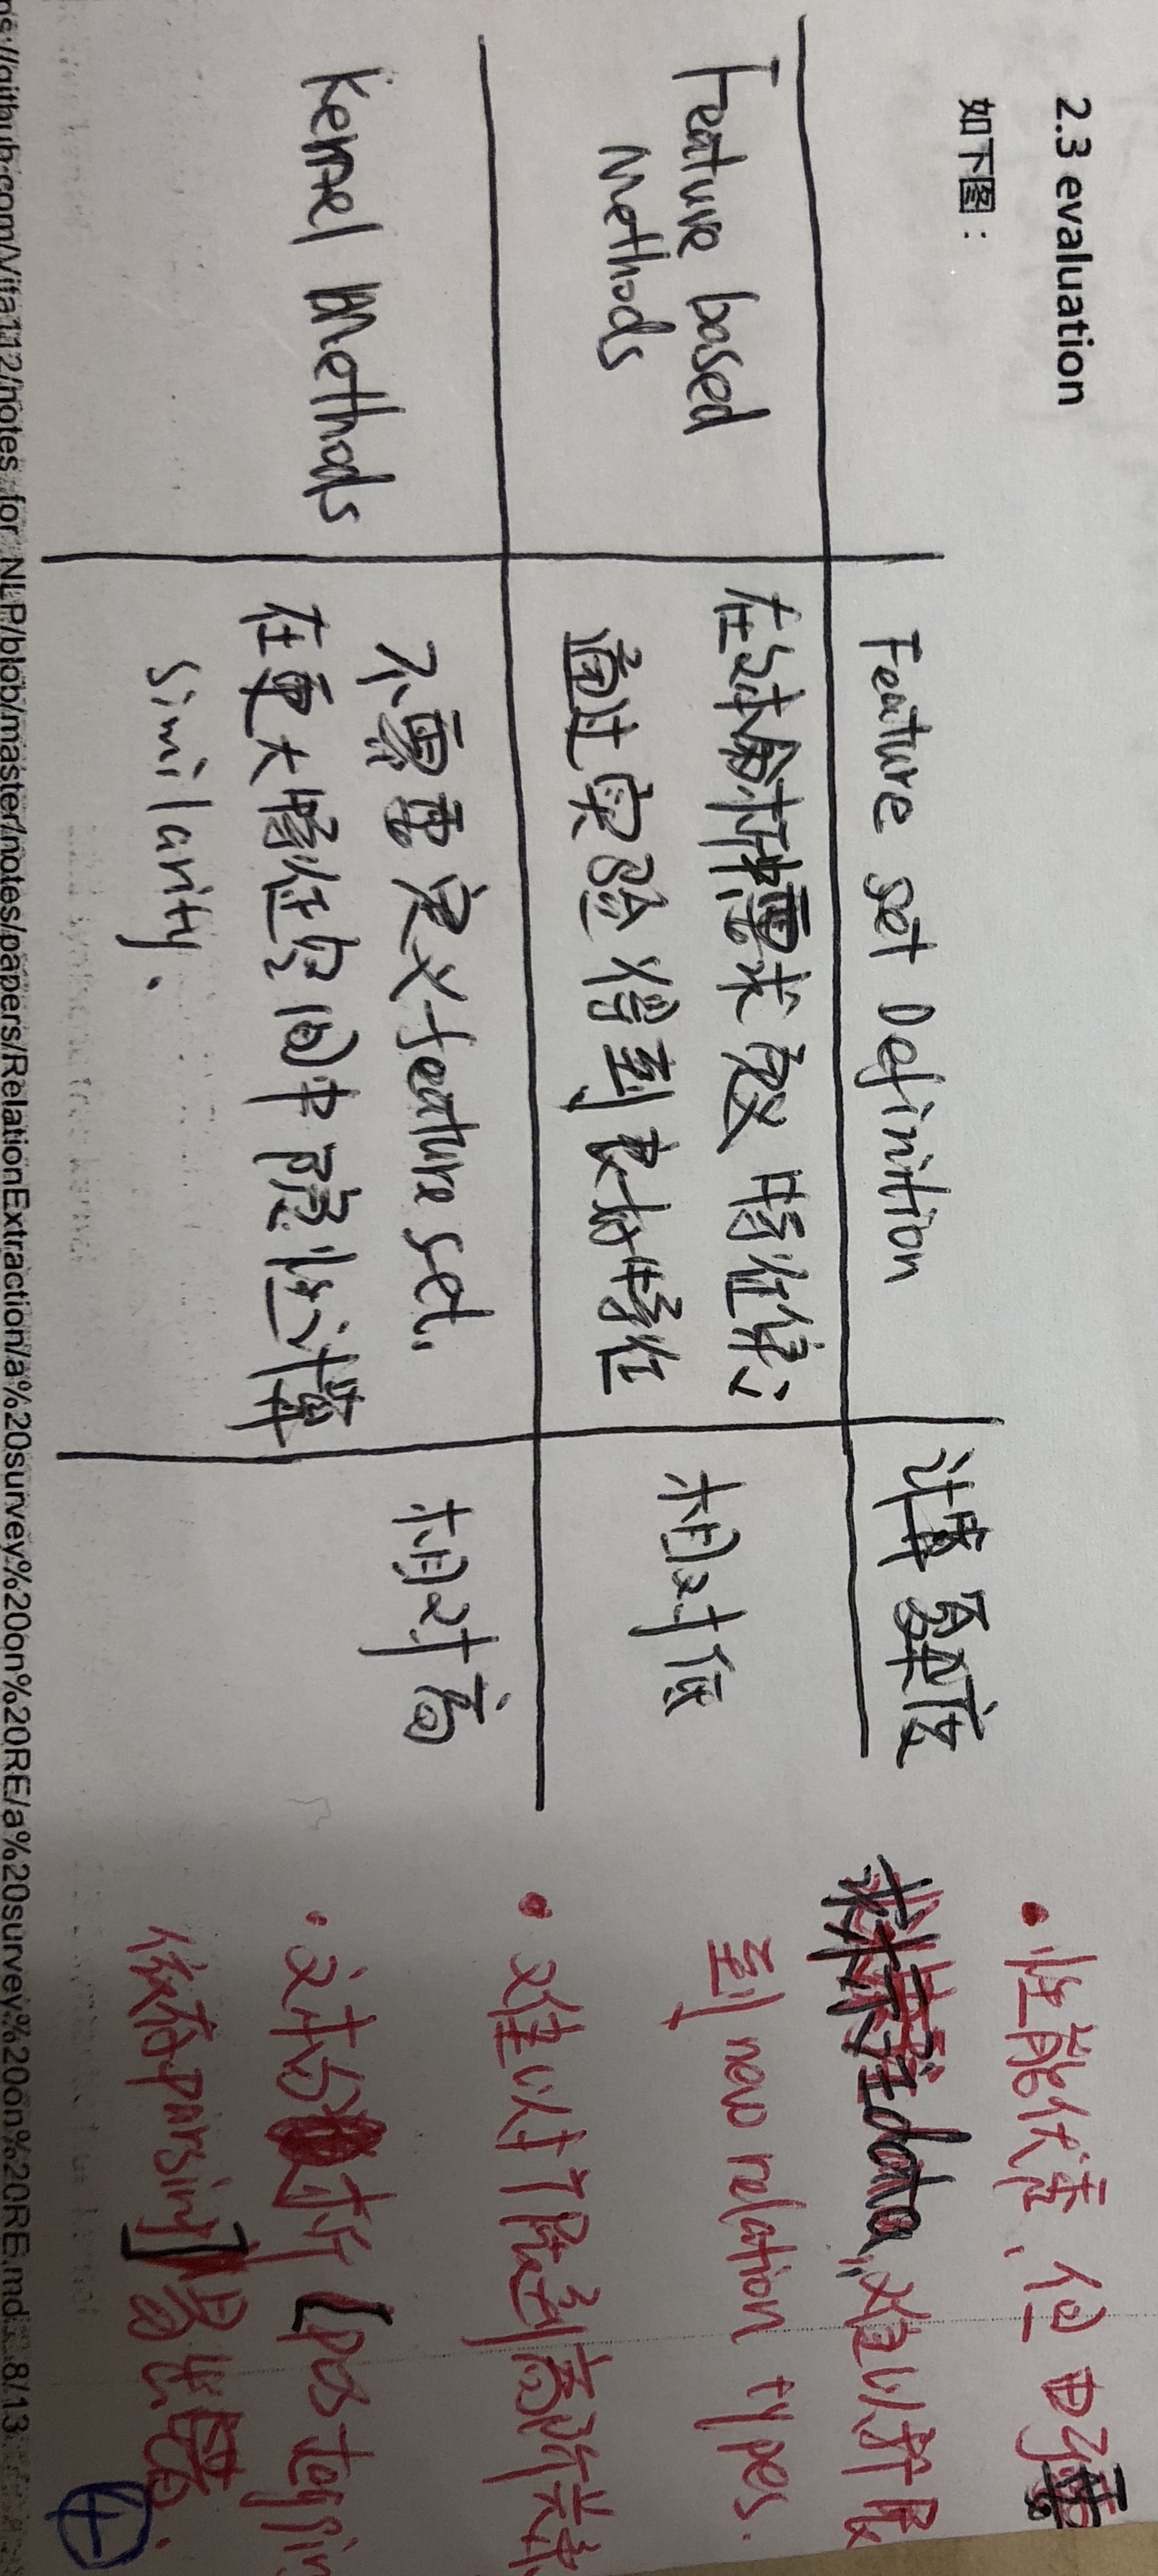 2.3 evaluation
如下图：
Feature set Definition
计算复杂度
Feature based
Methods
在文本分析中需求定义特征集;
通过实验得到良好特征
相对低
Kernel Methods
不需要定义feature set.
在更大特征空间中隐性计算
similarity.
相对高
• 性能优秀,但由于要
求标注data,难以扩展
到new relation types.
• 难以扩展到高阶关系
• 文本分析[pos tagging
依存parsing]易出错.
+
ps://github.com/Vita112/notes_for_NLP/blob/master/notes/papers/RelationExtraction/a%20survey%20on%20RE/a%20survey%20on%20RE.md 8/13